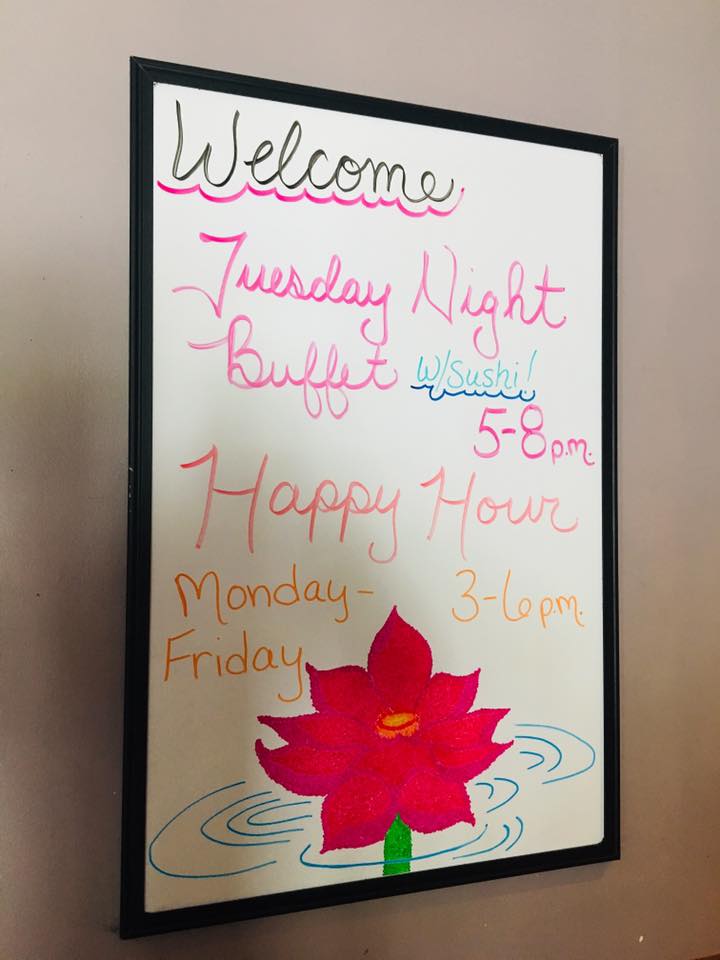 Welcome
Tuesday Night
Buffet w/Sushi!
5-8 p.m.
Happy Hour
Monday- 3-6 p.m.
Friday